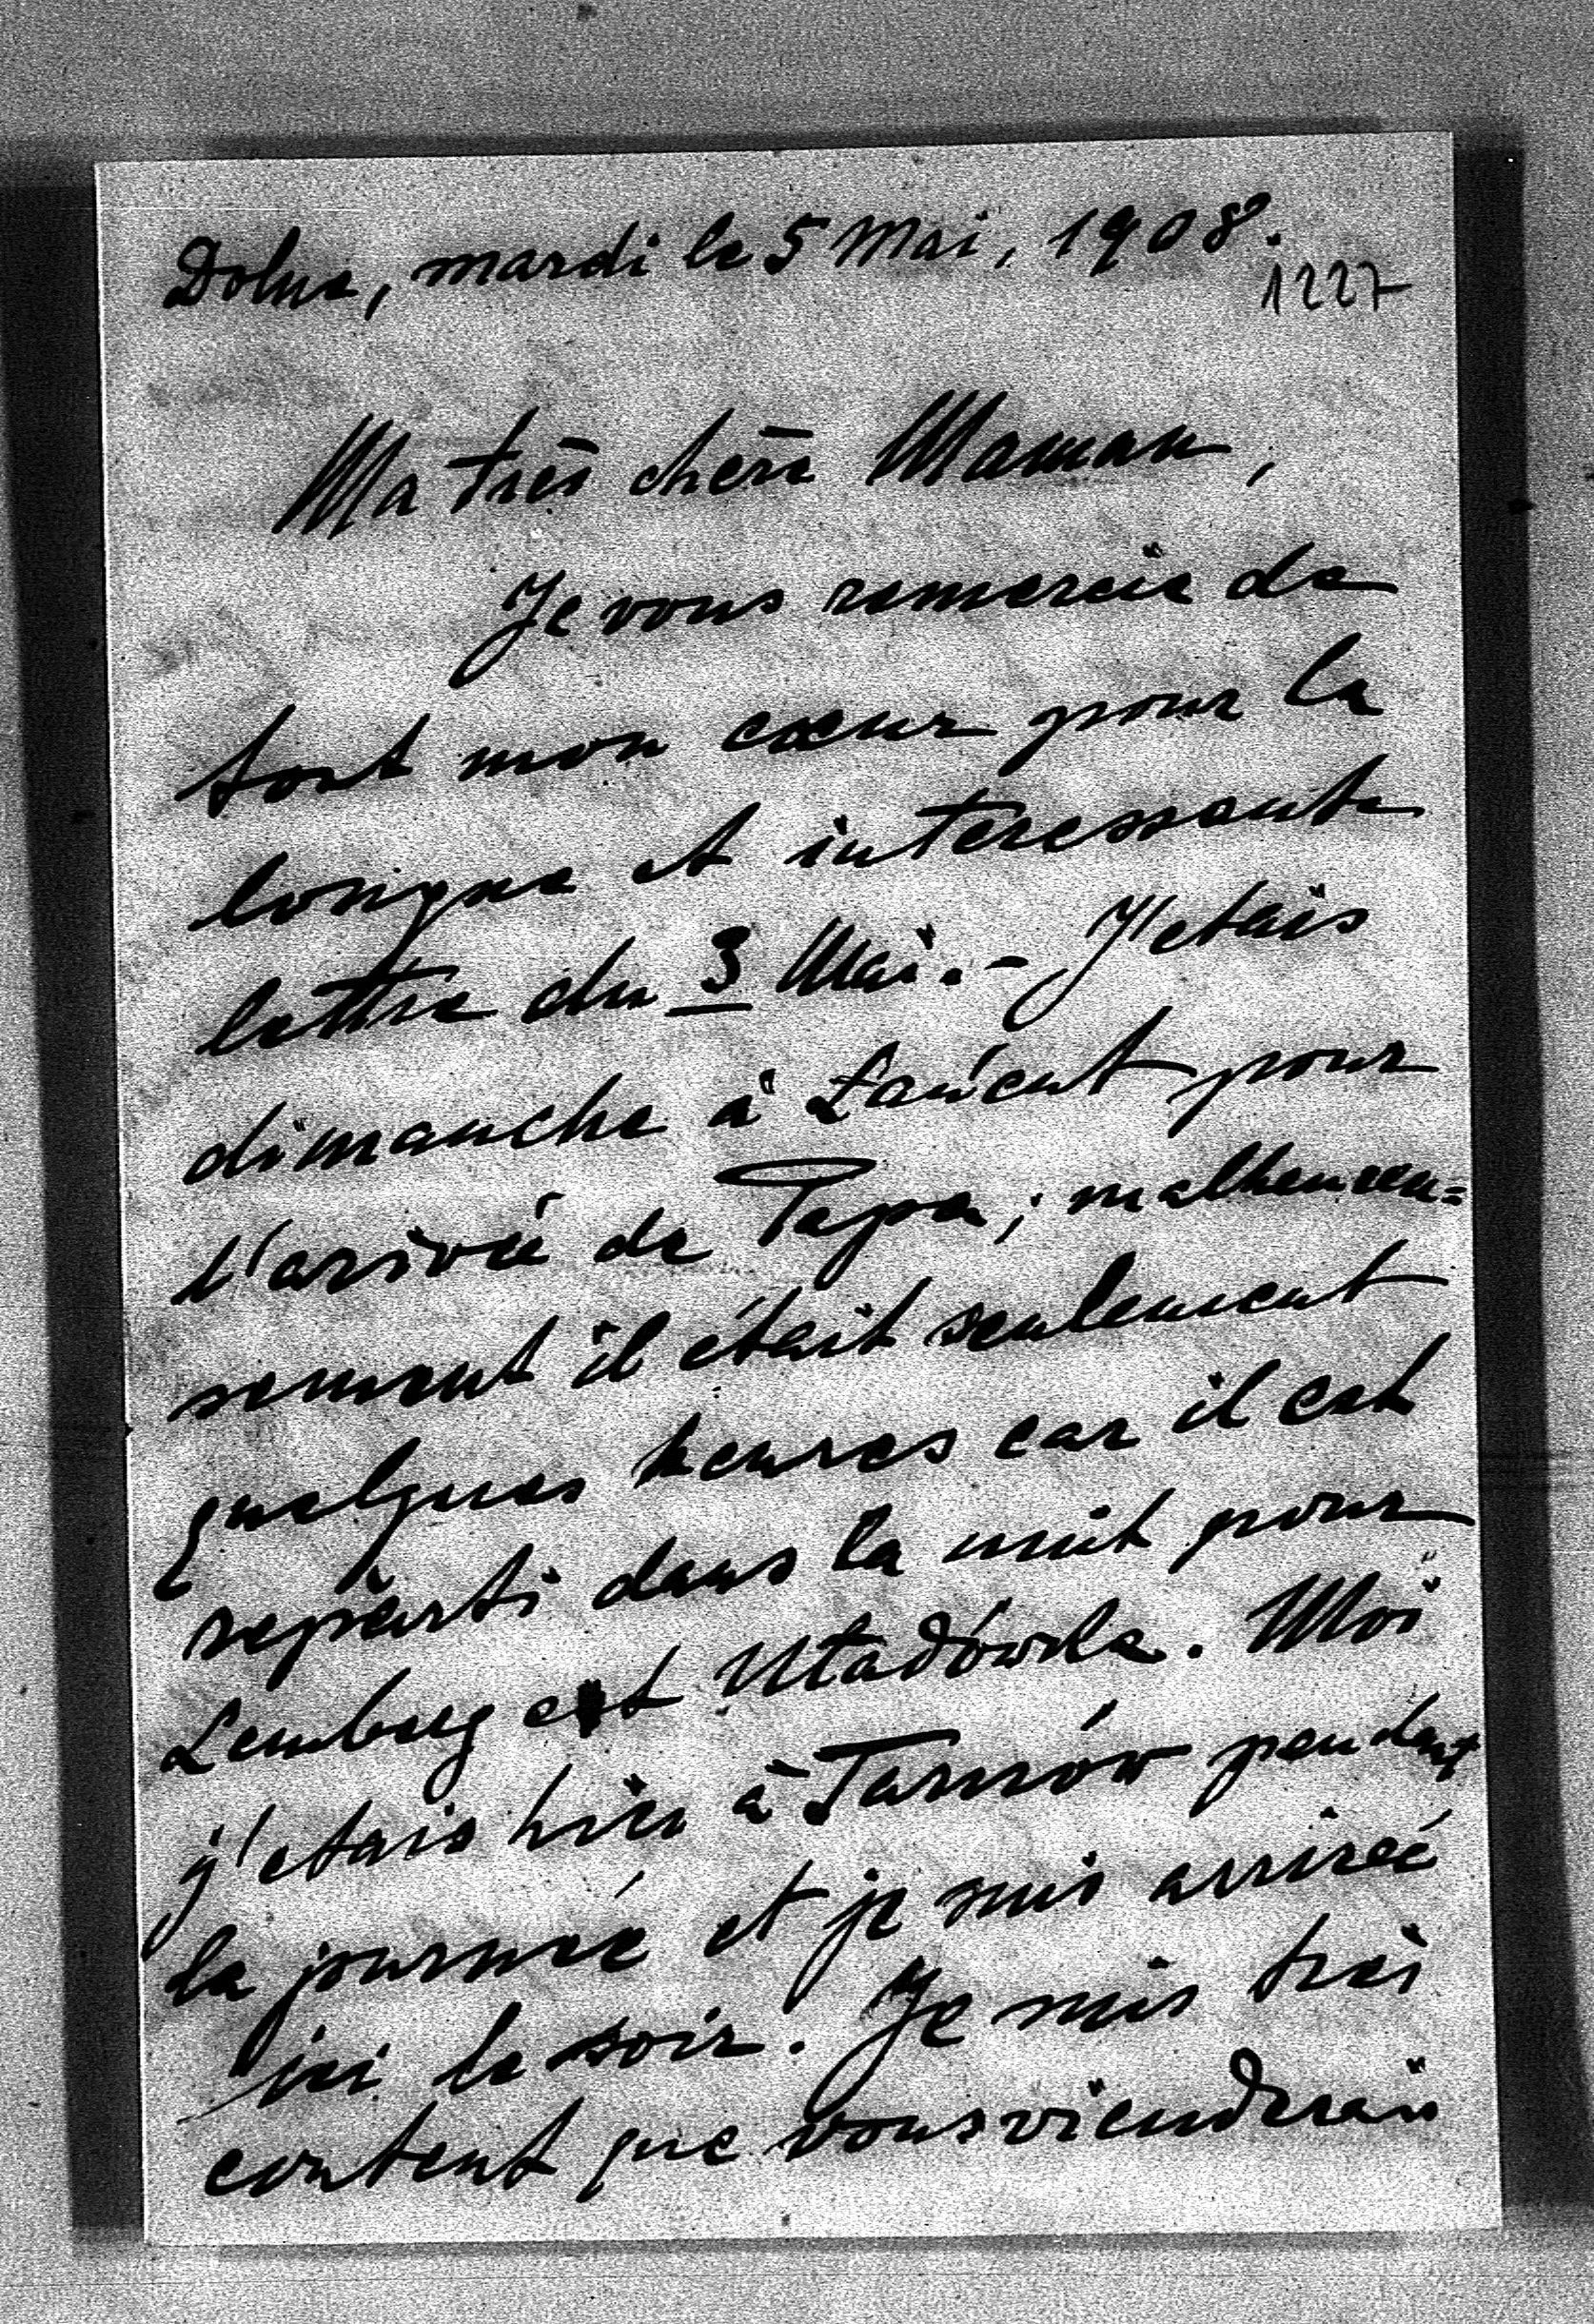 Dolna, mardi le 5 Mai, 1908.
1227
Ma très chèrè Maman,
Je vous remercie de
tout mon cœur pour la
longue et interessante
lettre du 3 Mai. - J'etais
dimanche à Łańcut pour
l'arivée de Papa; malheureu=
sement il était seulement
quelques heures car il est
reparti dans la nuit pour
Lemberg et Uładówka. Moi
j'etais hier à Tarnów pendant
la journeé et je suis arriveé
ici le soir. Je suis très
content que vous viendrais